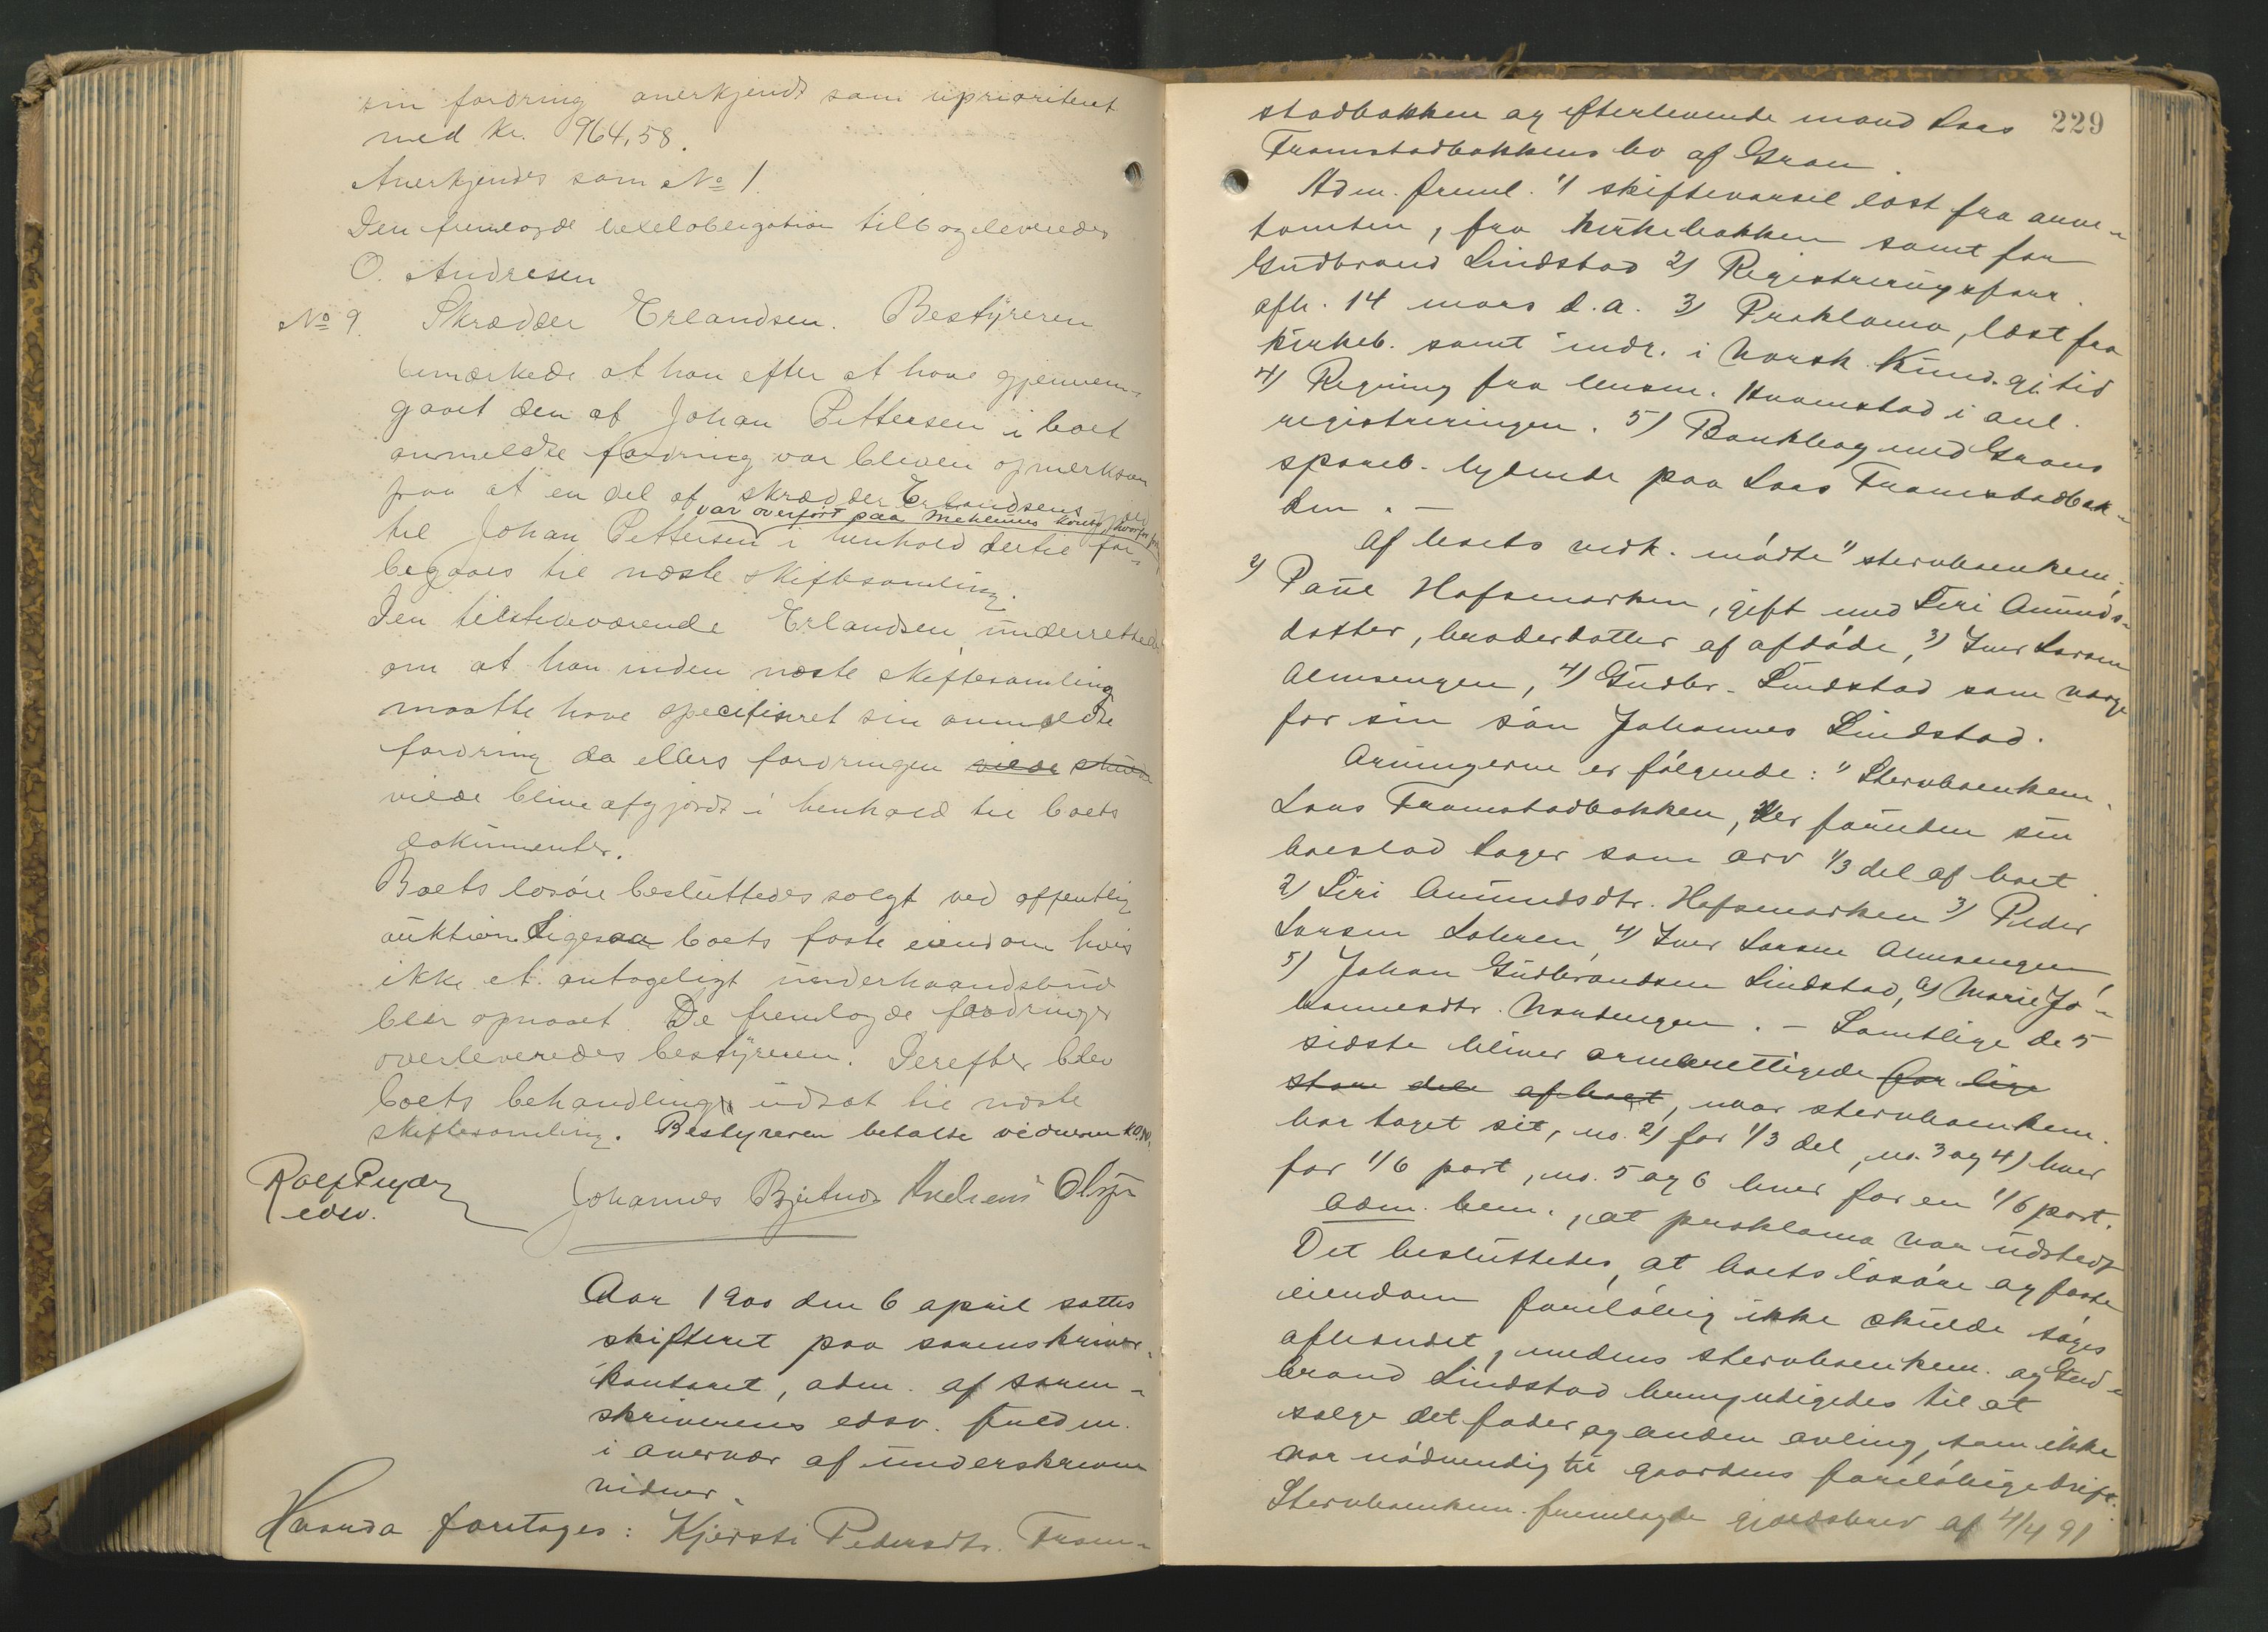 sin fordring anerkjendt som uprioriteret
med kr. 964,58.
Anerkjendes som No 1.
Den fremlagde vexelobligation tilbageleveredes
O. Andresen
No 9. Skrædder Erlandsen. Bestyreren
bemærkede at han efter at have gjennem-
gaaet den af Johan Pettersen i boet
anmeldte fordring var bleven opmerksom
paa at en del af skrædder Erlandsens gjæld
var overført paa konto, hvorfor
til Johan Pettersen i henhold dertil for-
begaaes til næste skiftesamling.
Den tilstedeværende Erlandsen underrettedes
om at han inden næste skiftesamling
maatte have specifiseret sin anmeldte
fordring da ellers fordringen vilde skulde
vilde blive afgjordt i henhold til boets
dokumenter.
Boets løsøre besluttedes solgt ved offentlig
auktion. Ligesaa boets faste eiendom hvis
ikke et antageligt underhaandsbud
blir opnaaet. De fremlagde fordringer
overleveredes bestyreren. Derefter blev
boets behandling udsat til næste
skiftesamling. Bestyreren betalte vidnerne k 0,80.
Johannes Andreas Olsen
edsv.
Aar 1900 den 6 april sattes
skifteret paa sorenskriver-
kontoret, adm. af soren-
skriverens edsv. fuldm.
i overvær af underskrevne
vidner.
Hvorda foretages: Kjersti Pedersdtr. Fram-
229
stadbakken og efterlevende mand Lars
Framstadbakkens bo af Gran.
Adm. freml. 1) skiftevarsel læst fra anne-
tomten, fra kirkebakken samt for
Gudbrand Lindstad 2) Registreringsforr.
afh. 14 mars d.a. 3) Proklama, læst fra
kirkeb. samt indr. i Norsk Kund.gj.tid
4) Regning fra lensm. Hvamstad i anl.
registreringen. 5) Bankbog med Grans
spareb. lydende paa Lars Framstadbak-
ken. —
Af boets vedk. mødte 1) stervboenkem.,
2) Paul Hofsmarken, gift med Siri Amunds-
datter, broderdatter af afdøde, 3) Iver Larsen
Almsengen, 4) Gudbr. Lindstad som værge
for sin søn Johannes Lindstad.
Arvingerne er følgende: 1) Stervboenkem.
Lars Framstadbakken, der foruden sin
boeslod tager som arv 1/3 del af boet.
2) Siri Amundsdtr. Hofsmarken 3) Peder
Larsen Lohren, 4) Iver Larsen Almsengen,
5) Johan Gudbrandsen Lindstad, 6) Marie Jo-
hannesdtr. Nordengen. — Samtlige de 5
sidste bliver arveberettigede for lige
store dele af boet, naar stervboenkem.
har taget sit, no. 2) for 1/3 del, no. 3 og 4) hver
for 1/6 part, no. 5 og 6 hver for en 1/6 part.
Adm. bem., at proklama var udstedt
Det besluttedes, at boets løsøre og faste
eiendom foreløbig ikke skulde søges
afhændet, medens stervboenkem. og Gud-
brand Lindstad bemyndigedes til at
sælge det foder og anden avling, som ikke
var nødvendig til gaardens foreløbige drift.
Stervboenkem. fremlagde gjældsbrev af 4/4 91